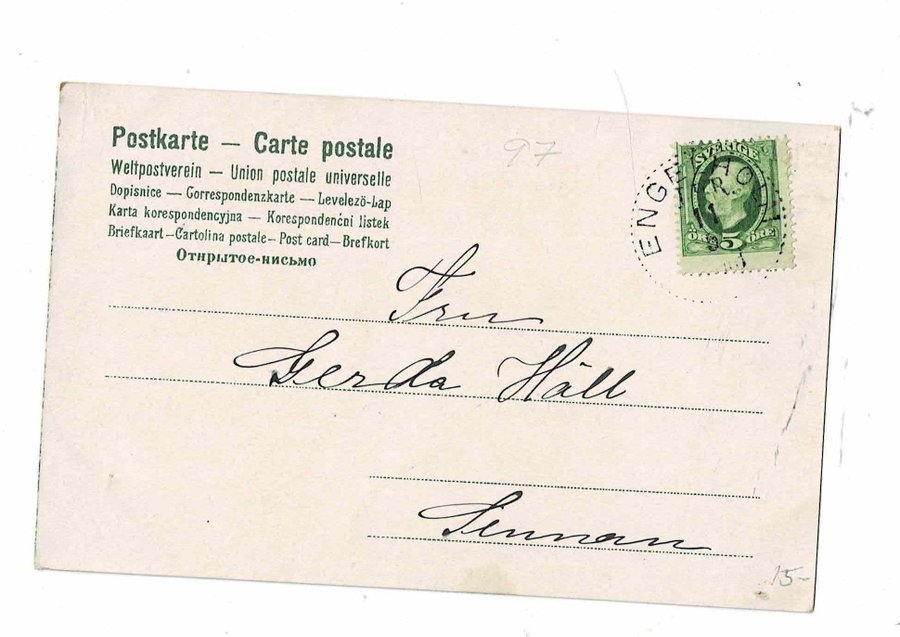 Postkarte — Carte postale
Weltpostverein — Union postale universelle
Dopisnice — Correspondenzkarte — Levelező-Lap
Karta korespondencyjna — Korespondenční lístek
Briefkaart—Cartolina postale—Post card—Brefkort
Открытое-письмо
97
SVERIGE
5
ÖRE ÖRE
Fru
Gerda Häll
Sennan
15-